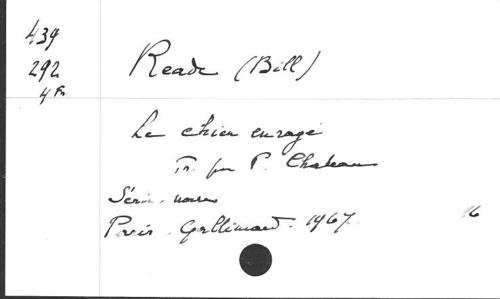 439
292
4 Fr
Reade (Bill)
Le chien enragé
Tr. par P. Chateau
Série noire
Paris. Gallimard. 1967.
16